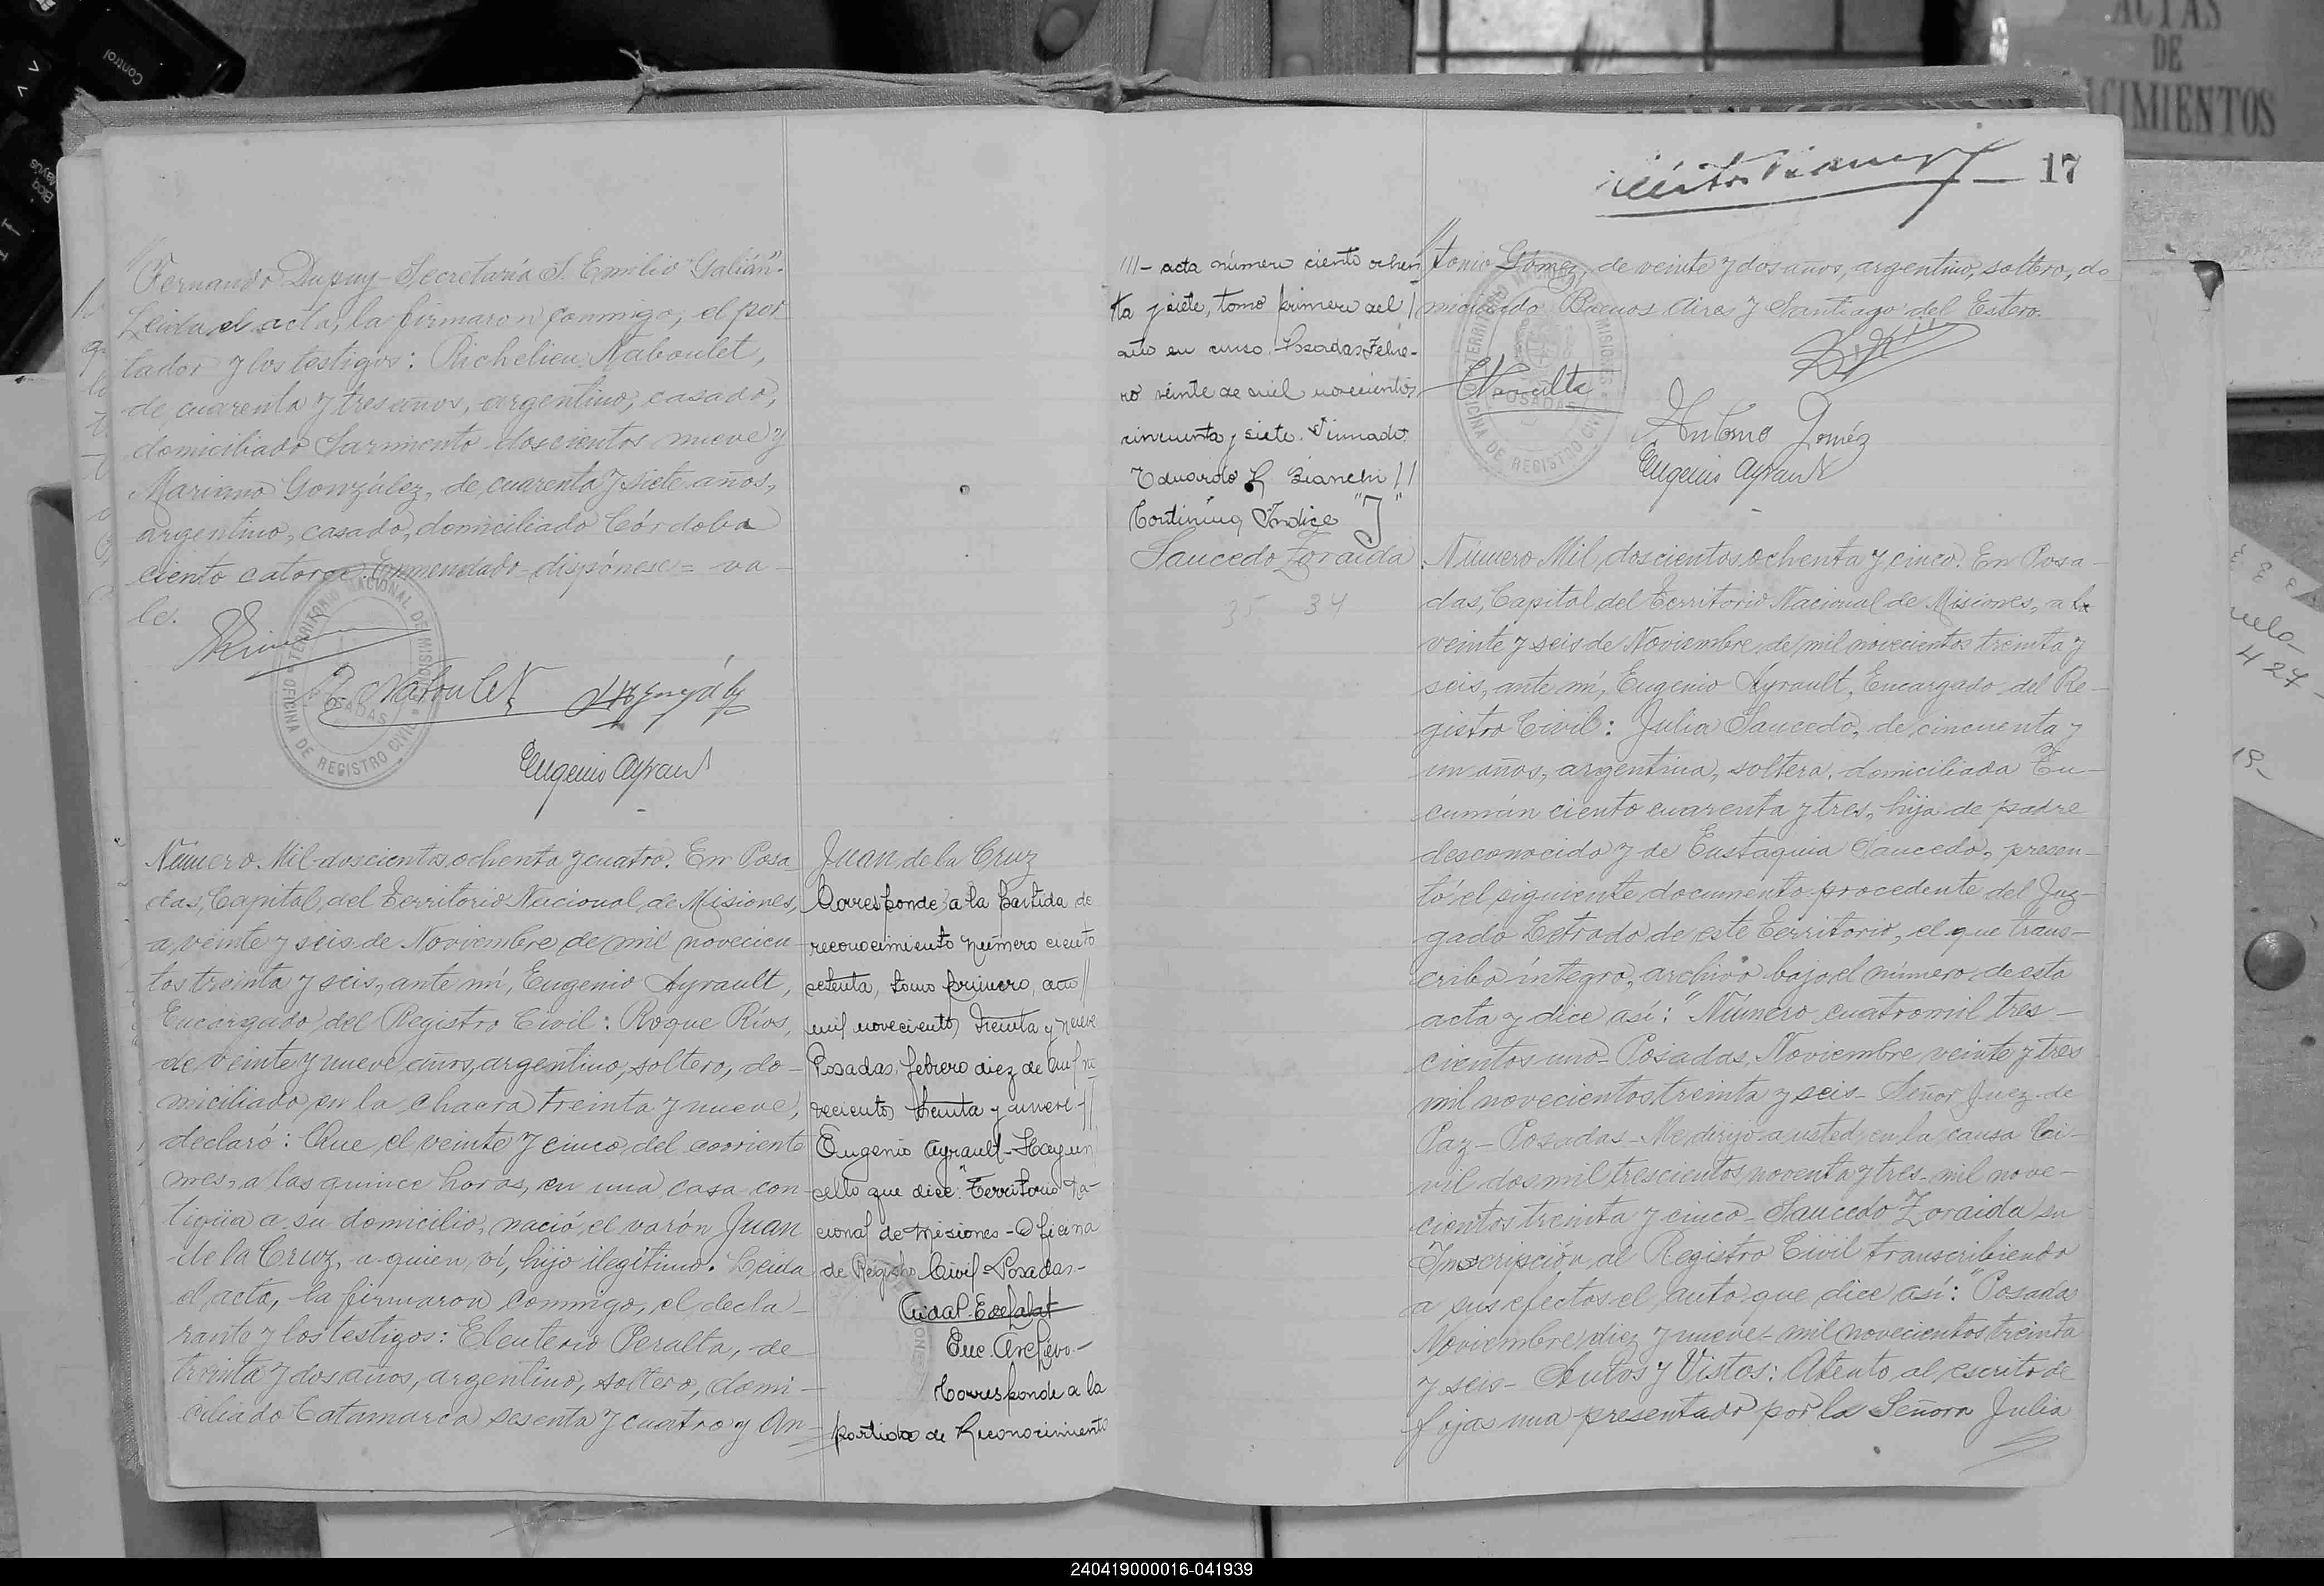 Control
Bloq
Mayús
ACTAS
DE
CIMIENTOS
17
"Fernando Dupuy - Secretaría S. Emilio Galián".
Leída el acta, la firmaron conmigo, el por-
tador y los testigos: Richelieu Naboulet,
de cuarenta y tres años, argentino, casado,
domiciliado Sarmiento doscientos nueve y
Mariano González, de cuarenta y siete años,
argentino, casado, domiciliado Córdoba
ciento catorce. Enmendado - dispónese = va-
le.
R. Naboulet
Eugenio Ayrault
OFICINA DE REGISTRO CIVIL
TERRITORIO NACIONAL DE MISIONES
POSADAS
Número Mil doscientos ochenta y cuatro. En Posa-
das, Capital del Territorio Nacional de Misiones,
a veinte y seis de Noviembre de mil novecien-
tos treinta y seis, ante mí, Eugenio Ayrault,
Encargado del Registro Civil: Roque Ríos,
de veinte y nueve años, argentino, soltero, do-
miciliado en la chacra treinta y nueve,
declaró: Que el veinte y cinco del corriente
mes, a las quince horas, en una casa con-
tigüa a su domicilio, nació el varón Juan
de la Cruz, a quien ví, hijo ilegítimo. Leída
el acta, la firmaron conmigo, el decla-
rante y los testigos: Eleuterio Peralta, de
treinta y dos años, argentino, soltero, domi-
ciliado Catamarca sesenta y cuatro y An-
Juan de la Cruz
Corresponde a la partida de
reconocimiento número ciento
setenta, tomo primero, año
mil novecientos treinta y nueve
Posadas, febrero diez de mil no
vecientos treinta y nueve -
Eugenio Ayrault - Hay un
sello que dice: "Territorio Na-
cional de Misiones - Oficina
de Registro Civil - Posadas -
Enc. Archivo -
Corresponde a la
partida de Reconocimiento
/// - acta número ciento ochen
ta y siete, tomo primero del
año en curso. Posadas, Febre-
ro veinte de mil novecientos
cincuenta y siete. Firmado:
Eduardo R Bianchi //
Continúa Indice "J"
Saucedo Zoraida
35 34
tonio Gómez, de veinte y dos años, argentino, soltero, do
miciliado Buenos Aires y Santiago del Estero.
Antonio Goméz
Eugenio Ayrault
OFICINA DE REGISTRO CIVIL
TERRITORIO MISIONES
POSADAS
Número Mil doscientos ochenta y cinco. En Posa-
das, Capital del Territorio Nacional de Misiones, a
veinte y seis de Noviembre de mil novecientos treinta y
seis, ante mí, Eugenio Ayrault, Encargado del Re-
gistro Civil: Julia Saucedo, de cincuenta y
un años, argentina, soltera, domiciliada Tu-
cumán ciento cuarenta y tres, hija de padre
desconocido y de Eustaquia Saucedo, presen-
tó el siguiente documento procedente del Juz-
gado Letrado de este Territorio, el que trans-
cribo íntegro, archivo bajo el número de esta
acta y dice así: "Número cuatromil tres-
cientos uno - Posadas, Noviembre veinte y tres
mil novecientos treinta y seis - Señor Juez de
Paz - Posadas - Me dirijo a usted en la causa Ci-
vil dosmil trescientos noventa y tres - mil nove-
cientos treinta y cinco - Saucedo Zoraida su
Inscripción al Registro Civil transcribiendo
a sus efectos el auto que dice así: "Posadas
Noviembre diez y nueve - mil novecientos treinta
y seis - Autos y Vistos: Atento al escrito de
fojas una presentado por la Señora Julia
427
19-
240419000016-041939